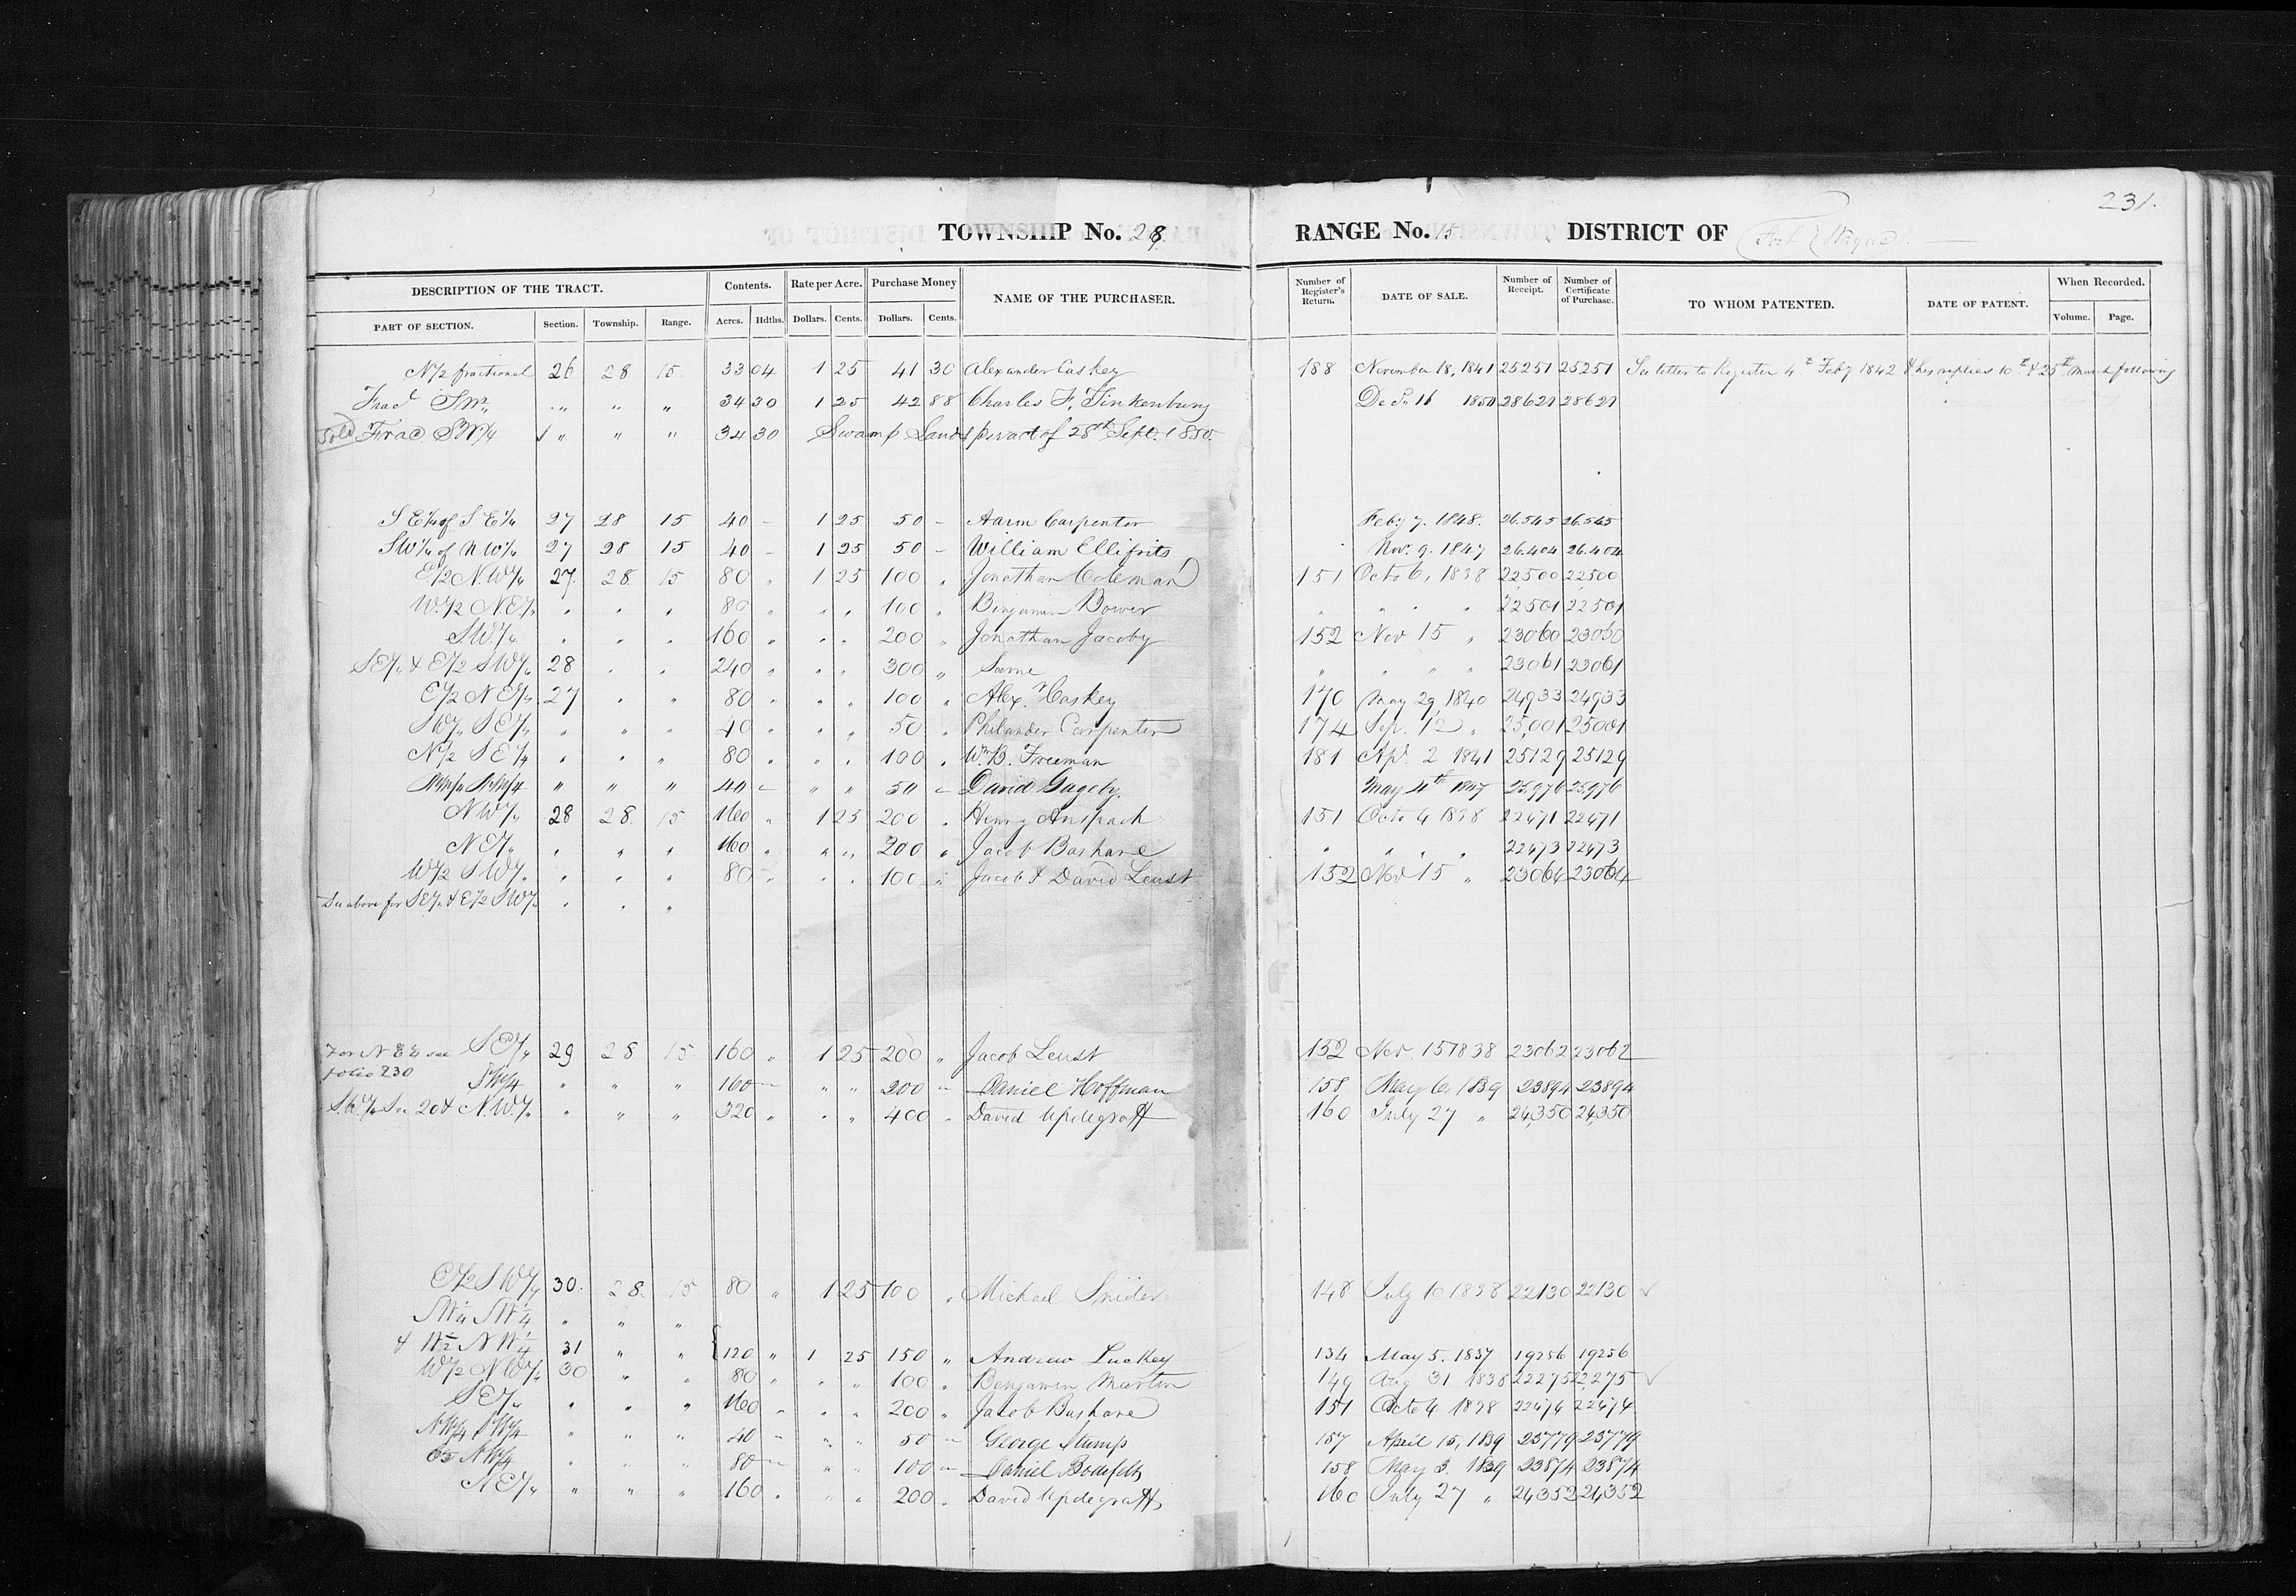 231.
TOWNSHIP No. 28. RANGE No. 15 DISTRICT OF Fort Wayne
DESCRIPTION OF THE TRACT. Contents. Rate per Acre. Purchase Money NAME OF THE PURCHASER. Number of Register's Return. DATE OF SALE. Number of Receipt. Number of Certificate of Purchase. TO WHOM PATENTED. DATE OF PATENT. When Recorded.
PART OF SECTION. Section. Township. Range. Acres. Hdths. Dollars. Cents. Dollars. Cents. Volume. Page.
N 1/2 fractional 26 28 15 33 04 1 25 41 30 Alexander Caskey 188 November 18, 1841 25251 25251 See letter to Register 4th Feby 1842 & his replies 10th & 25th March following
Frac SW " " " " 34 30 1 25 42 88 Charles F. Tinkenburg Dec 16 1850 28627 28627
Sold Frac. SW/4 √ " " " 34 30 Swamp Lands per act of 28th Sept. 1850.
S E 1/4 of S E 1/4 27 28 15 40 - 1 25 50 - Aaron Carpenter Feby 7. 1848. 26.545 26.545
SW 1/4 of N W 1/4 27 28 15 40 - 1 25 50 - William Ellifrits Nov. 9. 1847 26.404 26.404
E 1/2 N.W 1/4 27. 28 15 80 " 1 25 100 " Jonathan Coleman 151 Octo 6, 1838 22500 22500
W. 1/2 N.E 1/4 " " " 80 " " " 100 " Benjamin Bower " " " " 22501 22501
SW. 1/4 " " " 160 " " " 200 " Jonathan Jacoby 152 Nov 15 " 23060 23060
S E 1/4 & E 1/2 S W 1/4 28 " " 240 " " " 300 " Same " " " " 23061 23061
E 1/2 N E 1/4 27 " " 80 " " " 100 " Alex. Caskey 170 May 29, 1840 24933 24933
SW 1/4 S E 1/4 " " " 40 " " " 50 " Philander Carpenter 174 Sep. 12 " 25,001 25001
N 1/2 S E 1/4 " " " 80 " " " 100 " Wm B. Freeman 181 Ap. 2 1841 25129 25129
NW/4 NW/4 " " " 40 - " " 50 - David Gageby. May 4th 1847 25976 25976
N W 1/4 28 28 15 160 " 1 25 200 " Henry Anspach 151 Octo 4 1838 22471 22471
N E 1/4 " " " 160 " " " 200 " Jacob Bashare " " " " 22473 22473
W 1/2 S W 1/4 " " " 80 " " " 100 " Jacob & David Leust 152 Nov 15 " 23064 23064
See above for S E 1/4 & E 1/2 S W 1/4 " " "
For N E 1/4 see S E 1/4 29 28 15 160 " 1 25 200 " Jacob Leust 152 Nov. 15 1838 23062 23062
folio 230 SW/4 " " " 160 - " " 200 - Daniel Hoffman 158 May 6, 1839 23894 23894
S.W 1/4 Sec 20 & N.W. 1/4 " " " 320 " " " 400 " David Updegraff 160 July 27 " 24,350 24,350
E 1/2 S W 1/4 30. 28. 15 80 " 1 25 100 " Michael Snider 148 July 10 1838 22130 22130 √
SW 1/4 SW 1/4 " " "
& W 1/2 N W 1/4 31 " " { 120 " 1 25 150 " Andrew Luckey 134 May 5. 1837 19256 19256
W 1/2 N W 1/4 30 " " 80 " " " 100 " Benjamin Martin 149 Aug 31 1838 22275 22,275 √
S E 1/4 " " " 160 " " " 200 " Jacob Bashare 151 Octo 4 1838 22474 22474
NW/4 SW/4 " " " 40 " " " 50 - George Stump 157 April 15, 1839 23779 23779
E 1/2 NW/4 " " " 80 - " " 100 - Daniel 158 May 3. 1839 23874 23874
N E 1/4 " " " 160 " " " 200 " David Updegraff 160 July 27 " 24352 24,352